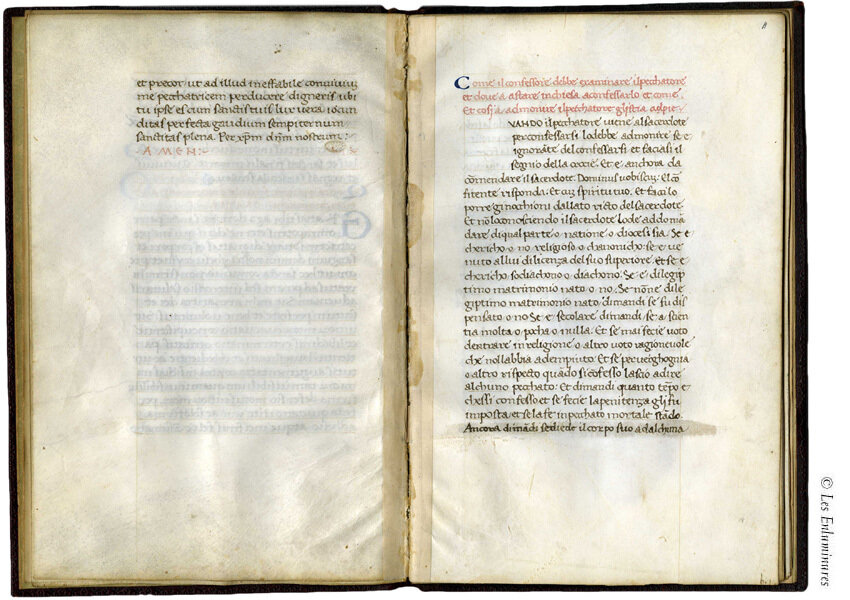 et precor ut ad illud ineffabile convivium
me pecchatricem perducere digneris ubi
tu ipse es cum sanctis tuis lux vera iocun
ditas perfecta gaudium sempiternum
sanctitas plena. Per xp̄m dn̄m nostrum:
AMEN:
Come il confessore debbe examinare il pechatore
et dove a astare in chiesa a confessarlo et come.
Et cosi a admonire il pechatore
VANDO il pechatore viene al sacerdote
per confessarsi lo debbe admonire se e
ignorāte del confessarsi et faciasi il
segno della croce. Et e anchora da
comendare il sacerdote. Dominus vobiscū. El cō
fitente risponda: Et cū spiritu tuo. et faccilo
porre ginochioni dallato ricto del sacerdote
Et nō lo conosciendo il sacerdote lo de addomā
dare di qual parte o natione o diocesi sia. Se e
cherico o no religioso o chanonicho: se e ve
nuto allui di licenza del suo superiore. Et se e
chericho sodiachono o diachono. Se e di legip
timo matrimonio nato o no. Se non e di le
giptimo matrimonio nato dimandi se fu dis
pensato o no Se e secolare dimandi se a scien
tia molta o pocha o nulla. Et se mai fecie voto
dentrare in religione o altro voto ragionevole
che nollabbia adempiuto. Et se per verghognia
o altro rispecto quādo si cōfesso lascio a dire
alchuno pechato: Et dimandi quanto tēpo e
chessi confesso et se fecie la penitenza gli fu
imposta et se la fe in pechato mortale stādo.
Ancora dimādi se diede il corpo suo a dalchuna
© Les Enluminures